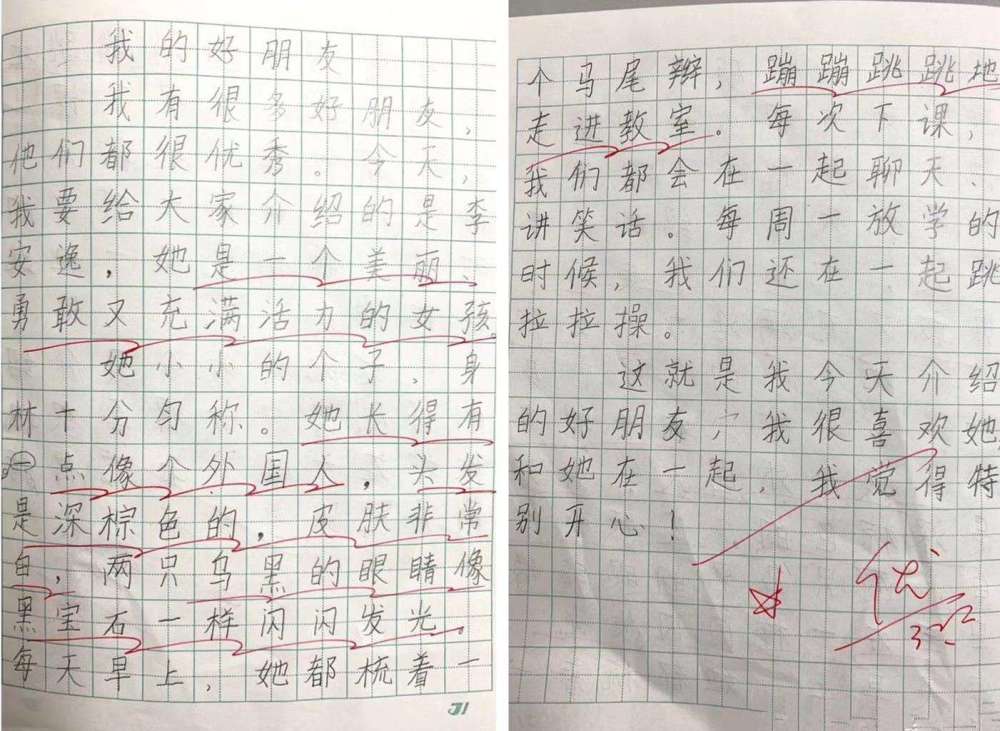 我的好朋友
我有很多好朋友，
他们都很优秀。今天，
我要给大家介绍的是李
安逸，她是一个美丽、
勇敢又充满活力的女孩。
她小小的个子，身
林十分匀称。她长得有
一点像个外国人，头发
是深棕色的，皮肤非常
白，两只乌黑的眼睛像
黑宝石一样闪闪发光。
每天早上，她都梳着一
31
个马尾辫，蹦蹦跳跳地
走进教室。每次下课，
我们都会在一起聊天、
讲笑话。每周一放学的
时候，我们还在一起跳
拉拉操。
这就是我今天介绍
的好朋友，我很喜欢她，
和她在一起，我觉得特
别开心！
优
3.22